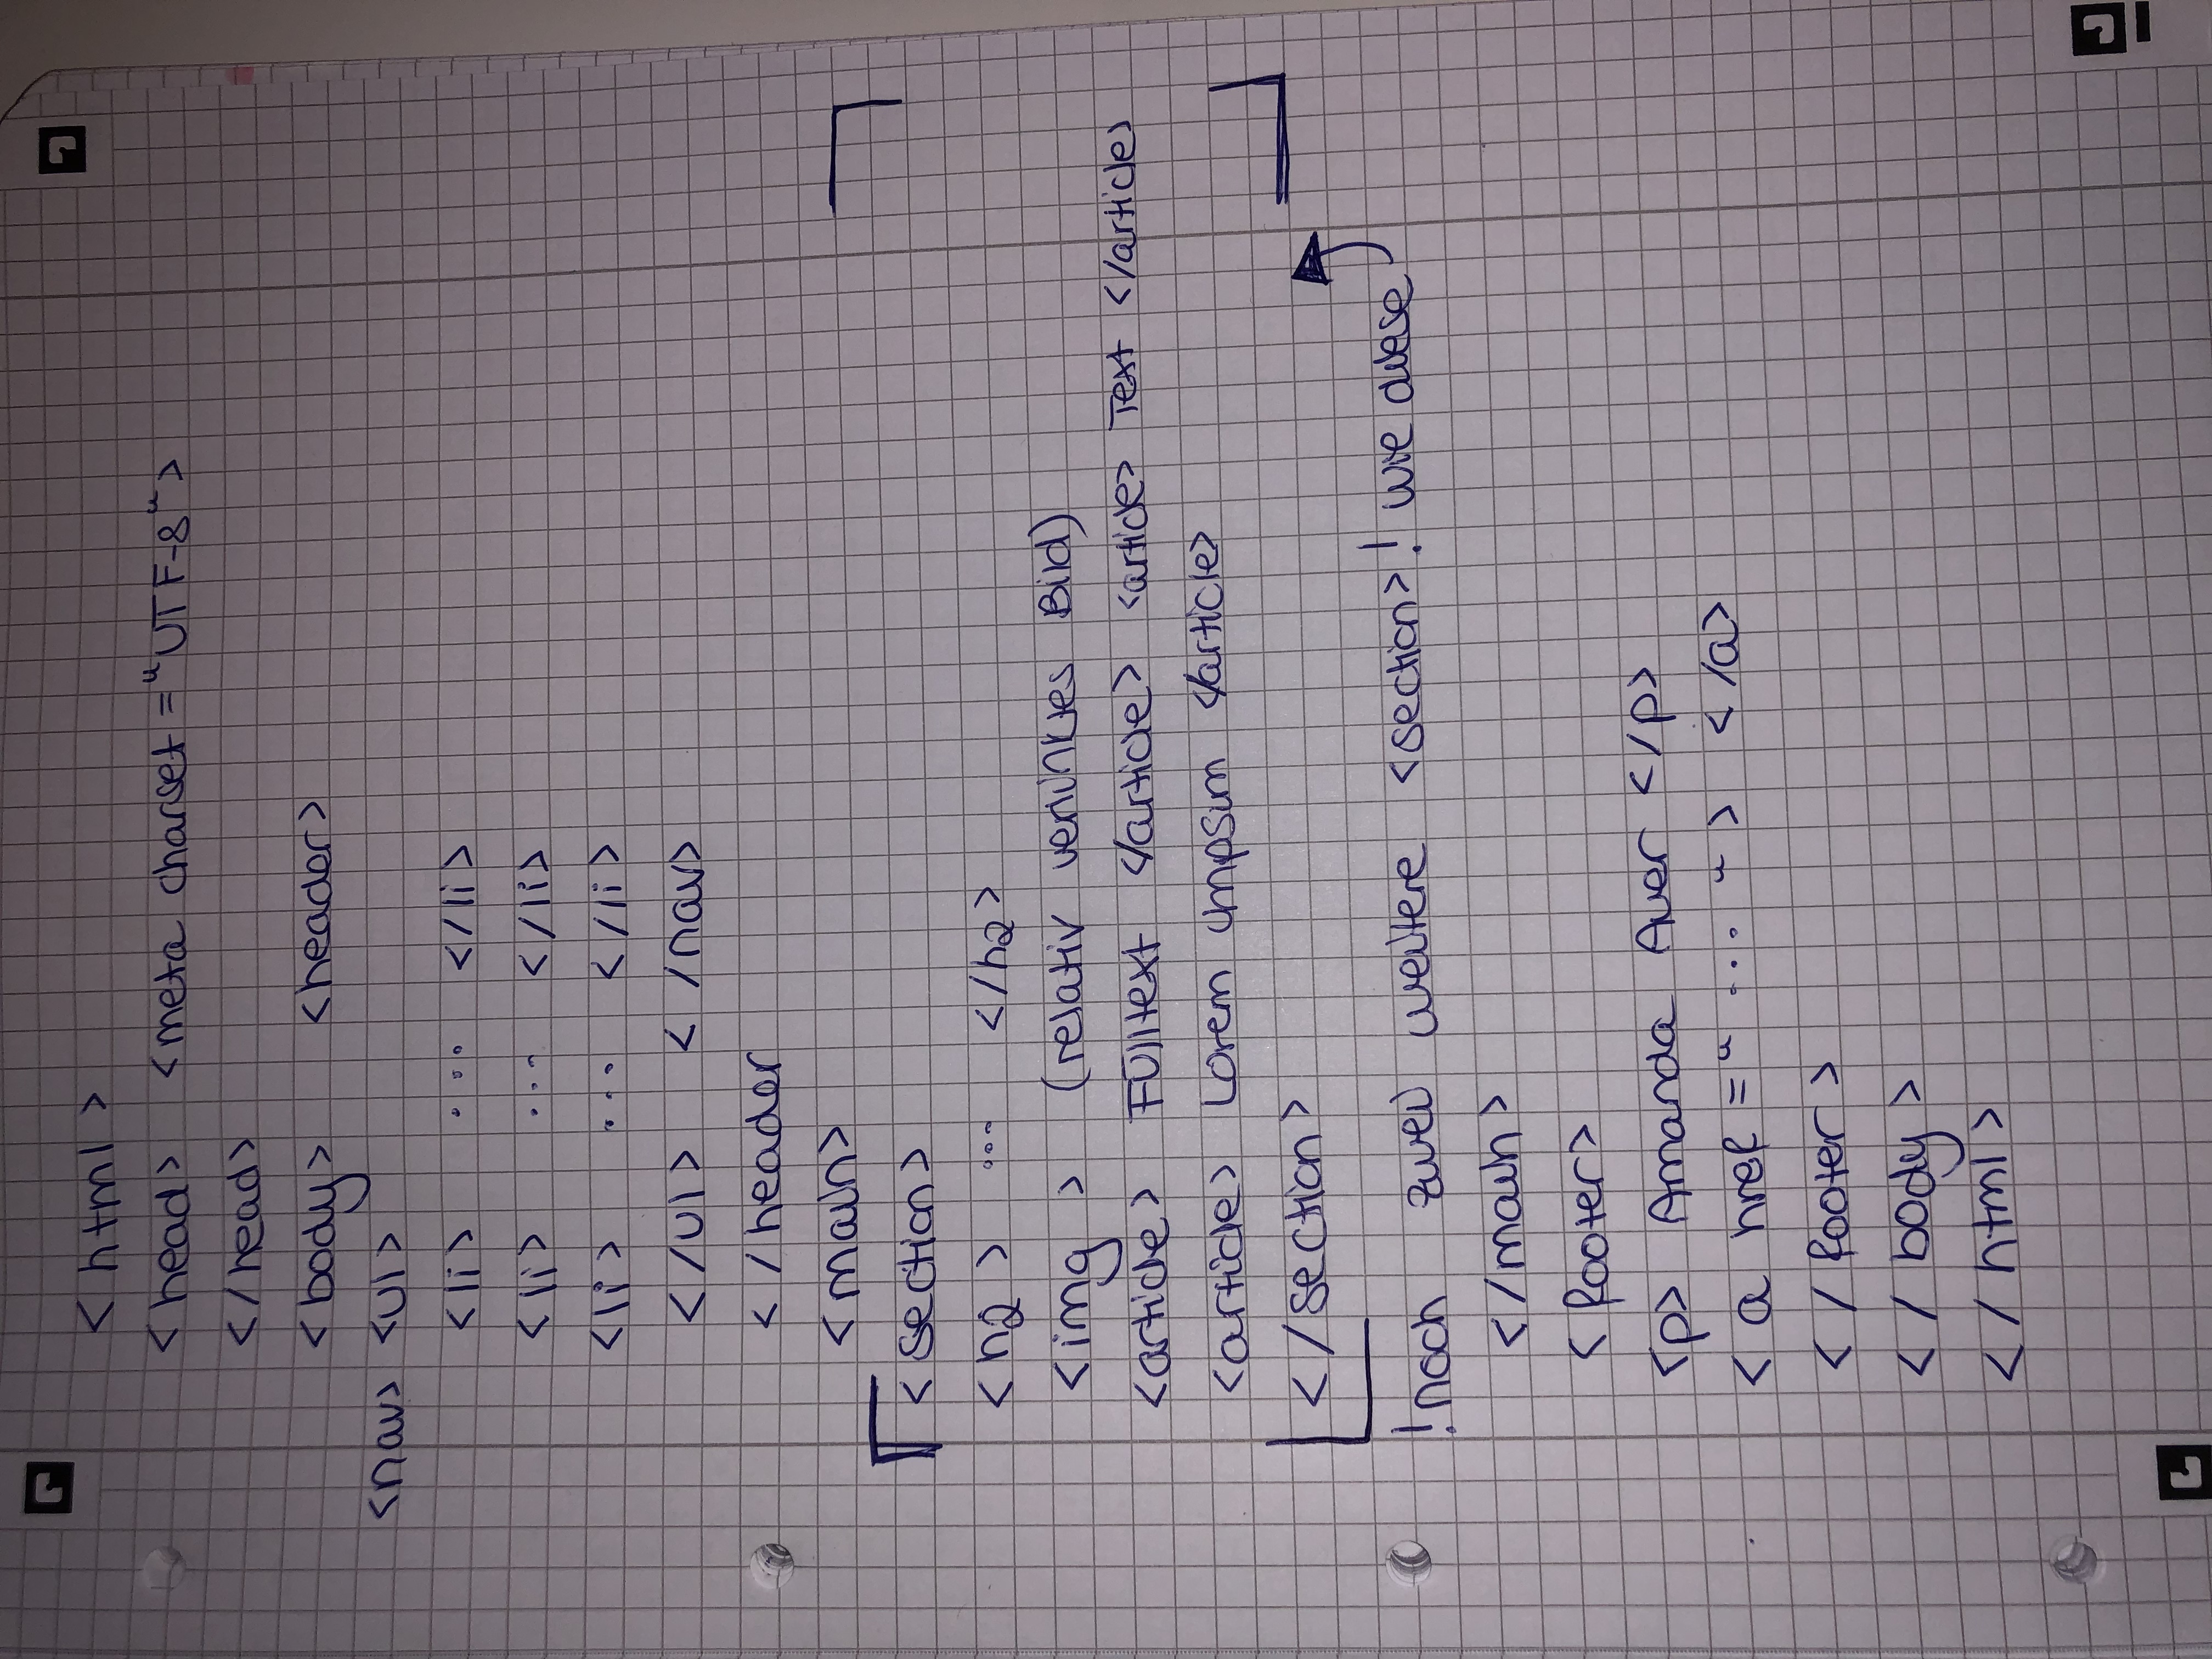 <html>
<head> <meta charset="UTF-8">
</head>
<body> <header>
<nav> <ul>
<li> ... </li>
<li> ... </li>
<li> ... </li>
</ul> </nav>
</header
<main>
<section>
<h2> ... </h2>
<img> (relativ verlinktes Bild)
<article> Fülltext </article> <article> Text </article>
<article> Lorem impsum </article>
</section>
!noch zwei weitere <section>! wie diese
</main>
<footer>
<p> Amanda Auer </p>
<a href="..."> </a>
</footer>
</body>
</html>